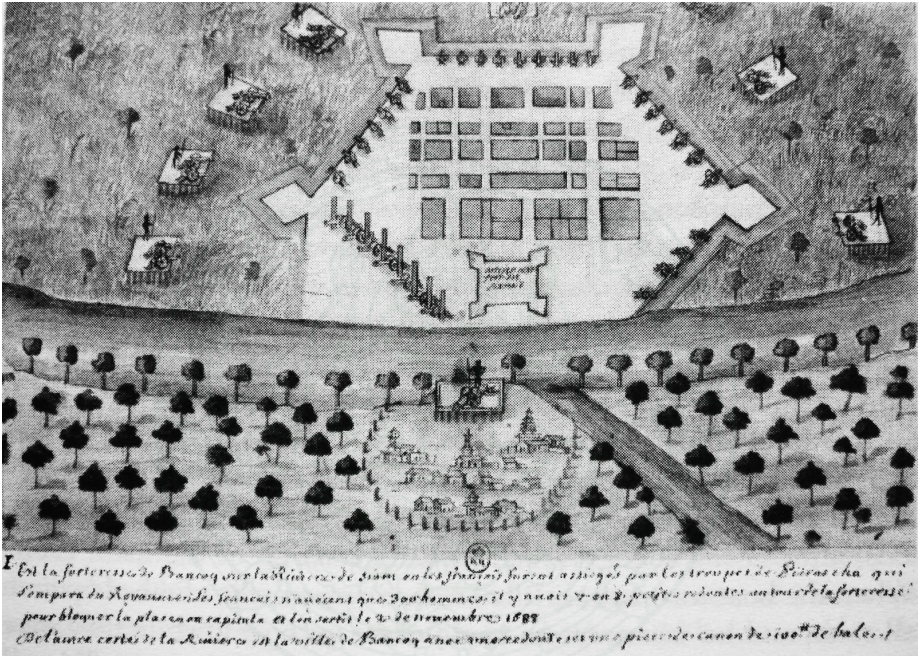 I. Est la forteresse de Bancoq sur la Riuiere de Siam ou les francois furent assiegés par les troupes de Pitrascha qui
s'empara du Royaume les francais n'aueient que 300 hommes, il y auoit 8 petites redoutes autour de la forteresse
pour bloquer la place on capitula et l'on sortit le de nouembre 1688
De l'autre costé de la Riuiere est la ville de Bancoq auec une redoute et une piece de canon de 100 ᵗᵗ de bales